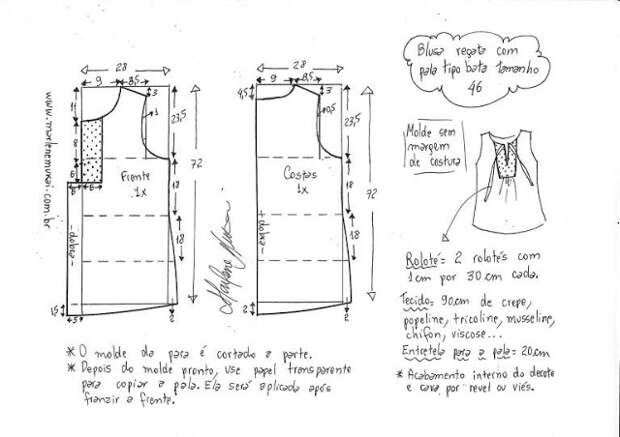 www.marlenemukai.com.br
28
9
8,5
3
11
1
23,5
8
6
6
6
Frente
1x
72
18
18
-dobra-
1,5
4,5
2
28
9
8,5
4,5
3
0,5
23,5
Costas
1x
72
18
18
-dobra-
2
2
Marlene Mukai
Blusa regata com
pala tipo bata tamanho
46
Molde sem
margem
de costura
Roloté = 2 rolotés com
1cm por 30cm cada.
Tecido = 90cm de crepe,
popeline, tricoline, musseline,
chifon, viscose...
Entretela para a pala = 20cm
* Acabamento interno do decote
e cava, por revel ou viés.
* O molde da para é cortado a parte.
* Depois do molde pronto, use papel transparente
para copiar a pala. Ela será aplicada após
franzir a frente.